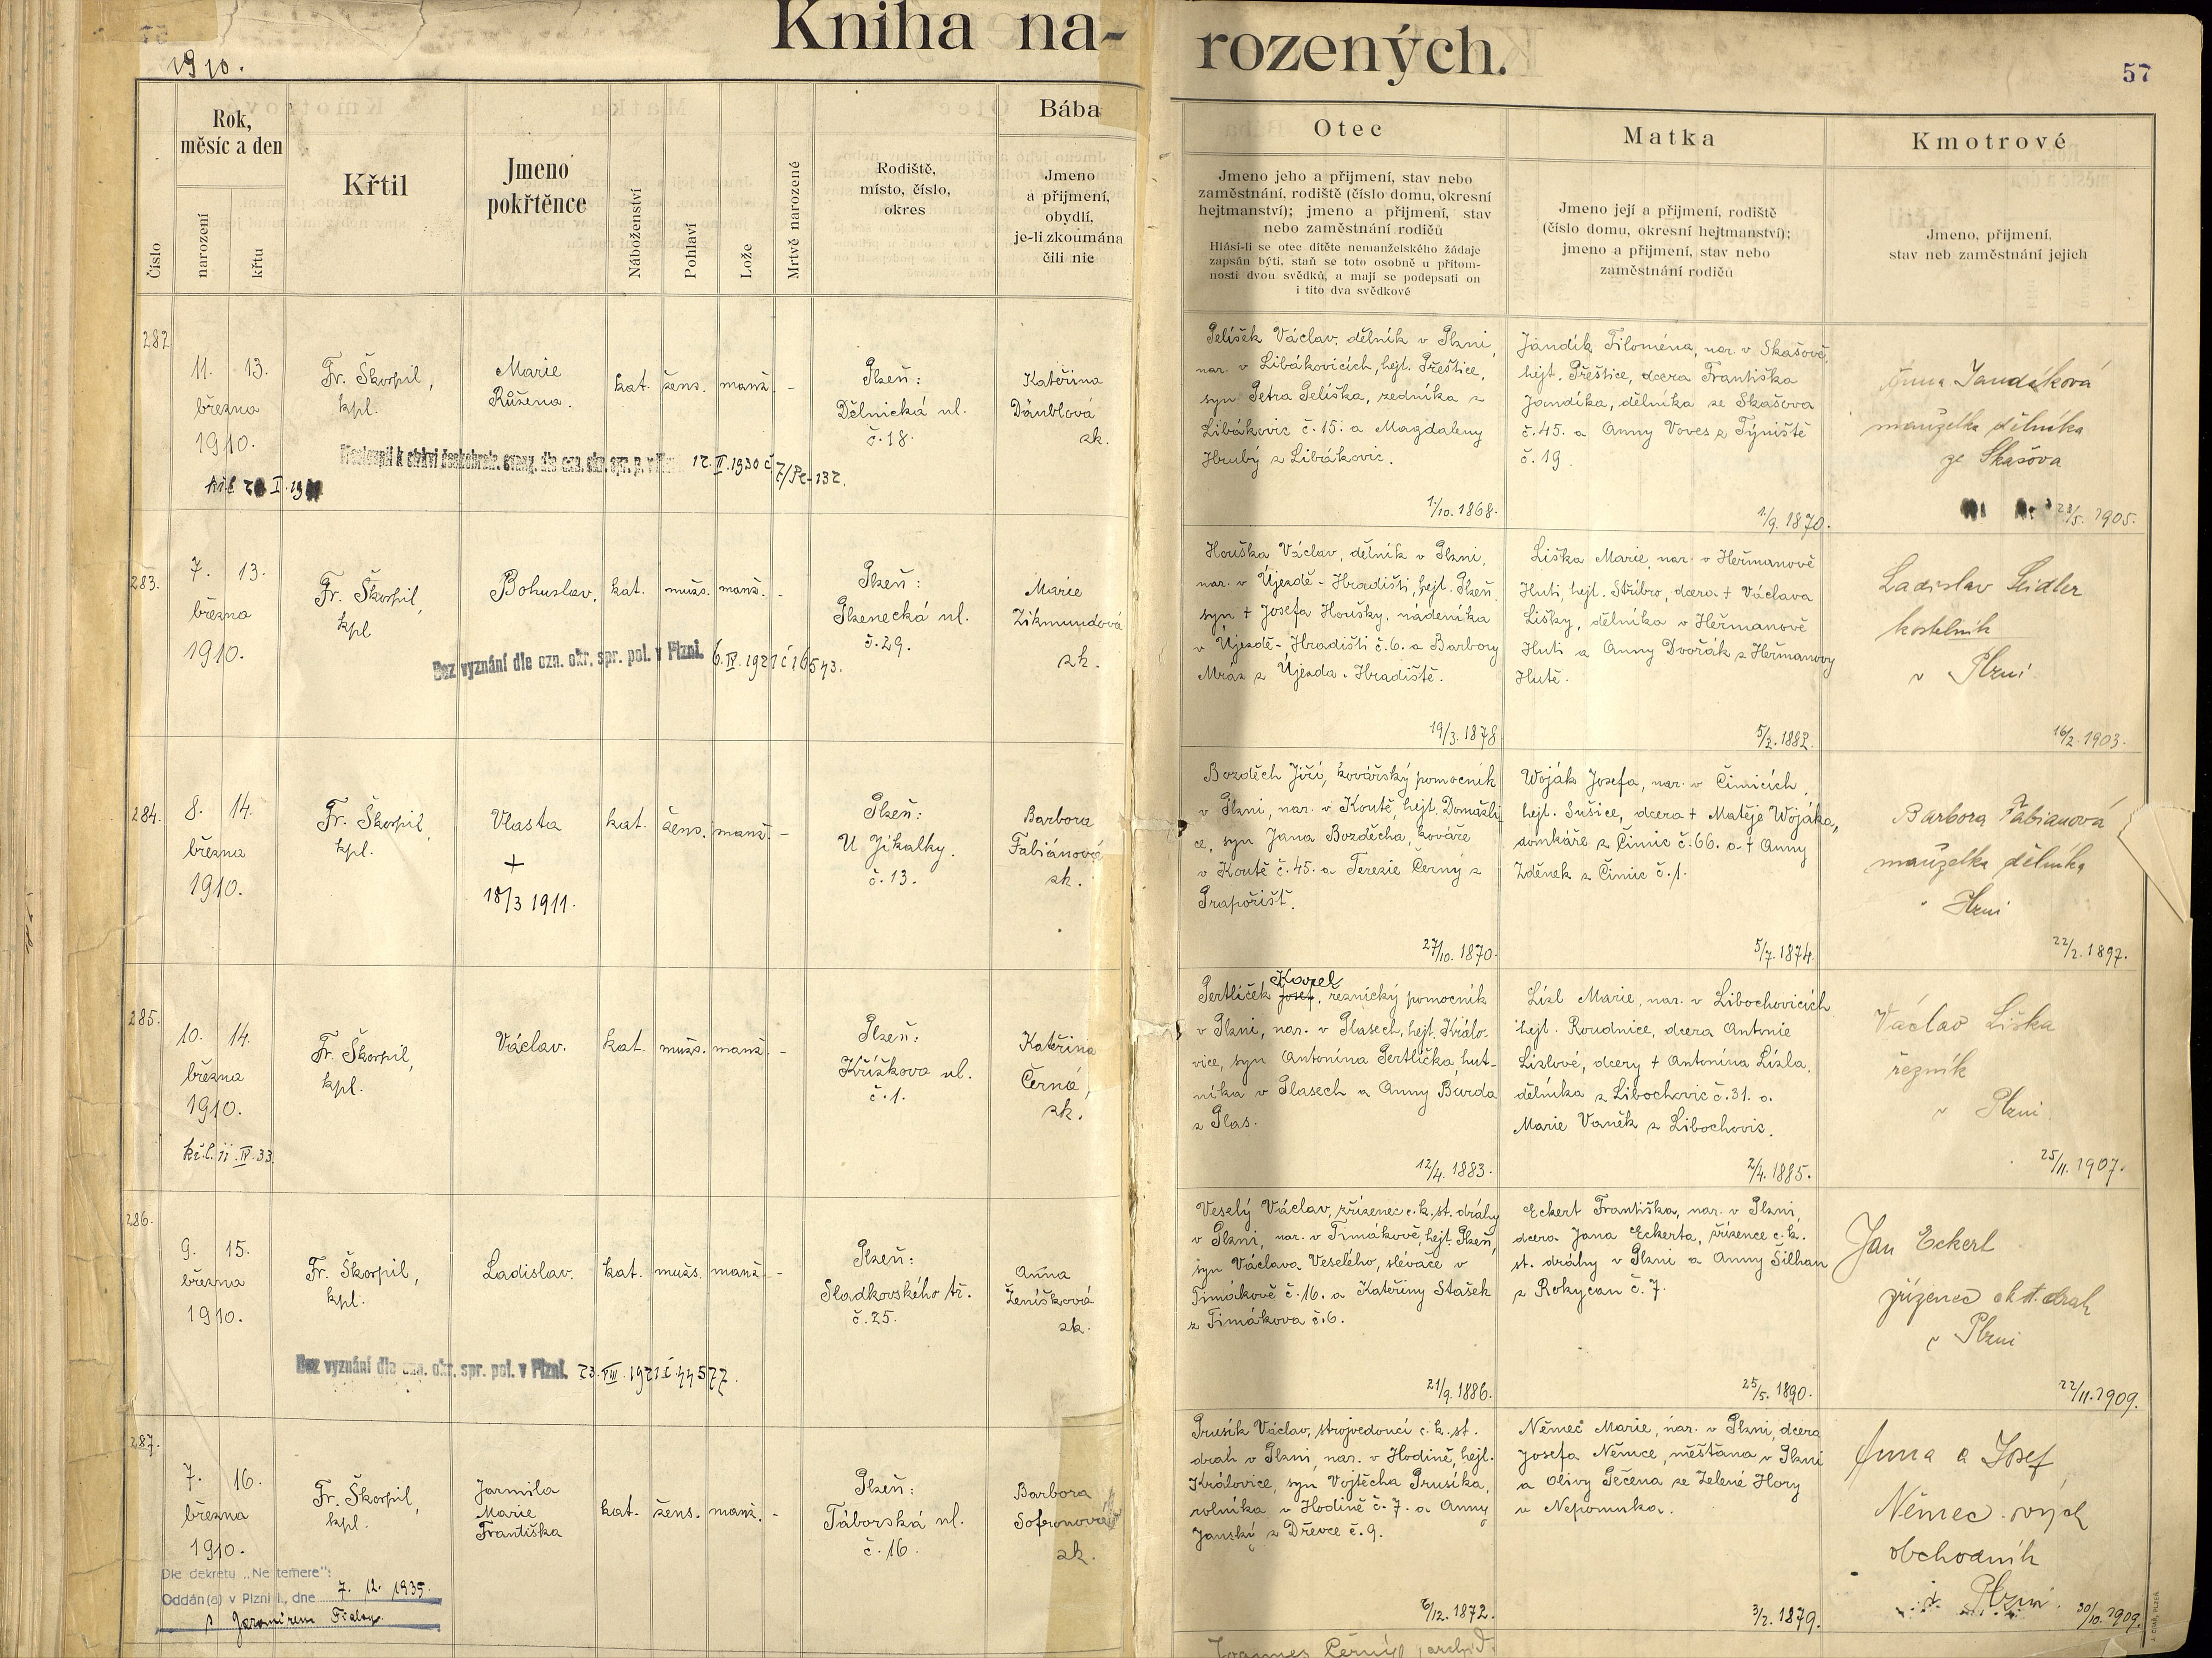 Kniha na-
rozených.
57
1910.
Číslo
Rok,
měsíc a den
narození
křtu
Křtil
Jmeno
pokřtěnce
Náboženství
Pohlaví
Lože
Mrtvě narozené
Rodiště,
místo, číslo,
okres
Bába
Jmeno
a přijmení,
obydlí,
je-li zkoumána
čili nic
Otec
Jmeno jeho a přijmení, stav nebo
zaměstnání, rodiště (číslo domu, okresní
hejtmanství); jmeno a přijmení, stav
nebo zaměstnání rodičů
Hlásí-li se otec dítěte nemanželského žádaje
zapsán býti, staň se toto osobně u přítom-
nosti dvou svědků, a mají se podepsati on
i tito dva svědkové
Matka
Jmeno její a přijmení, rodiště
(číslo domu, okresní hejtmanství);
jmeno a přijmení, stav nebo
zaměstnání rodičů
Kmotrové
Jmeno, přijmení,
stav neb zaměstnání jejich
282
11. 13.
března
1910.
Fr. Škorpil,
kpl.
Marie
Růžena.
kat. žens. manž. -
Plzeň:
Dělnická ul.
č. 18.
Kateřina
Däublová
zk.
12. II. 1930 č. 7/Pe-132.
Pelíšek Václav, dělník v Plzni,
nar. v Libákovicích, hejt. Přeštice,
syn Petra Pelíška, zedníka z
Libákovic č. 15. a Magdaleny
Hrubý z Libákovic.
1/10. 1868.
Jandík Filoména, nar. v Skašově,
hejt. Přeštice, dcera Františka
Jandíka, dělníka ze Skašova
č. 45. a Anny Voves z Týniště
č. 19.
1/9. 1870.
Anna Jandíková
manželka dělníka
ze Skašova
23/5. 1905.
283.
7. 13.
března
1910.
Fr. Škorpil,
kpl
Bohuslav.
kat. mužs. manž. -
Plzeň:
Plzenecká ul.
č. 29.
Marie
Zikmundová
zk.
Bez vyznání dle ozn. okr. spr. pol. v Plzni. 6. IV. 1921 č 16543.
Houška Václav, dělník v Plzni,
nar. v Újezdě-Hradišti, hejt. Plzeň,
syn + Josefa Houšky, nádeníka
v Újezdě-Hradišti č. 6. a Barbory
Mráz z Újezda-Hradiště.
19/3. 1878
Liška Marie, nar. v Heřmanově
Huti, hejt. Stříbro, dcera + Václava
Lišky, dělníka v Heřmanově
Huti a Anny Dvořák z Heřmanovy
Hutě.
5/2. 1882.
Ladislav Seidler
kostelník
v Plzni
16/2. 1903.
284.
8. 14.
března
1910.
Fr. Škorpil,
kpl.
Vlasta
+
18/3 1911.
kat. žens. manž. -
Plzeň:
U Jíkalky.
č. 13.
Barbora
Fabiánová
zk.
Bozděch Jiří, kovářský pomocník
v Plzni, nar. v Koutě, hejt. Domažli-
ce, syn Jana Bozděcha, kováře
v Koutě č. 45. a Terezie Černý z
Prapořišť.
27/10. 1870.
Woják Josefa, nar. v Čimicích,
hejt. Sušice, dcera + Matěje Wojáka,
domkáře z Čimic č. 66. a + Anny
Zděnek z Čimic č. 1.
5/7. 1874.
Barbora Fabianová
manželka dělníka
Plzni
22/2. 1897.
285.
10. 14.
března
1910.
Fr. Škorpil,
kpl.
Václav.
kat. mužs. manž. -
Plzeň:
Křížkova ul.
č. 1.
Kateřina
Černá,
zk.
bř. l. 11. IV. 33.
Karel
Pertlíček Josef, řeznický pomocník
v Plzni, nar. v Plasech, hejt. Králo-
vice, syn Antonína Pertlíčka, hut-
níka v Plasech a Anny Burda
z Plas.
12/4. 1883.
Lízl Marie, nar. v Libochovicích
hejt. Roudnice, dcera Antonie
Lízlové, dcery + Antonína Lízla,
dělníka z Libochovic č. 31. a
Marie Vaněk z Libochovic.
2/4. 1885.
Václav Liška
řezník
v Plzni.
25/11. 1907.
286.
9. 15.
března
1910.
Fr. Škorpil,
kpl.
Ladislav.
kat. mužs. manž. -
Plzeň:
Sladkovského tř.
č. 25.
Anna
Ženíšková
zk.
Bez vyznání dle ozn. okr. spr. pol. v Plzni. 23. VIII. 1921 č 44577.
Veselý Václav, zřízenec c. k. st. dráhy
v Plzni, nar. v Timákově, hejt. Plzeň,
syn Václava Veselého, slévače v
Timákově č. 16. a Kateřiny Stašek
z Timákova č. 6.
21/9. 1886.
Eckert Františka, nar. v Plzni,
dcera Jana Eckerta, zřízence c. k.
st. dráhy v Plzni a Anny Šilhan
z Rokycan č. 7.
25/5. 1890.
Jan Eckert
zřízenec ck st. drah
v Plzni
22/11. 1909.
287.
7. 16.
března
1910.
Fr. Škorpil,
kpl.
Jarmila
Marie
Františka
kat. žens. manž. -
Plzeň:
Táborská ul.
č. 16.
Barbora
Sofronová
zk.
Dle dekretu „Ne temere":
Oddán(a) v Plzni I., dne 7. 12. 1935.
s Jaromírem Fialou.
Prusík Václav, strojvedoucí c. k. st.
drah v Plzni, nar. v Hodině, hejt.
Královice, syn Vojtěcha Prusíka,
rolníka v Hodině č. 7. a Anny
Janský z Dřevce č. 9.
6/12. 1872.
Němec Marie, nar. v Plzni, dcera
Josefa Němce, měšťana v Plzni
a Olivy Pečena ze Zelené Hory
u Nepomuka.
3/2. 1879.
Anna a Josef
Němec
obchodník
v Plzni.
30/10. 1909.